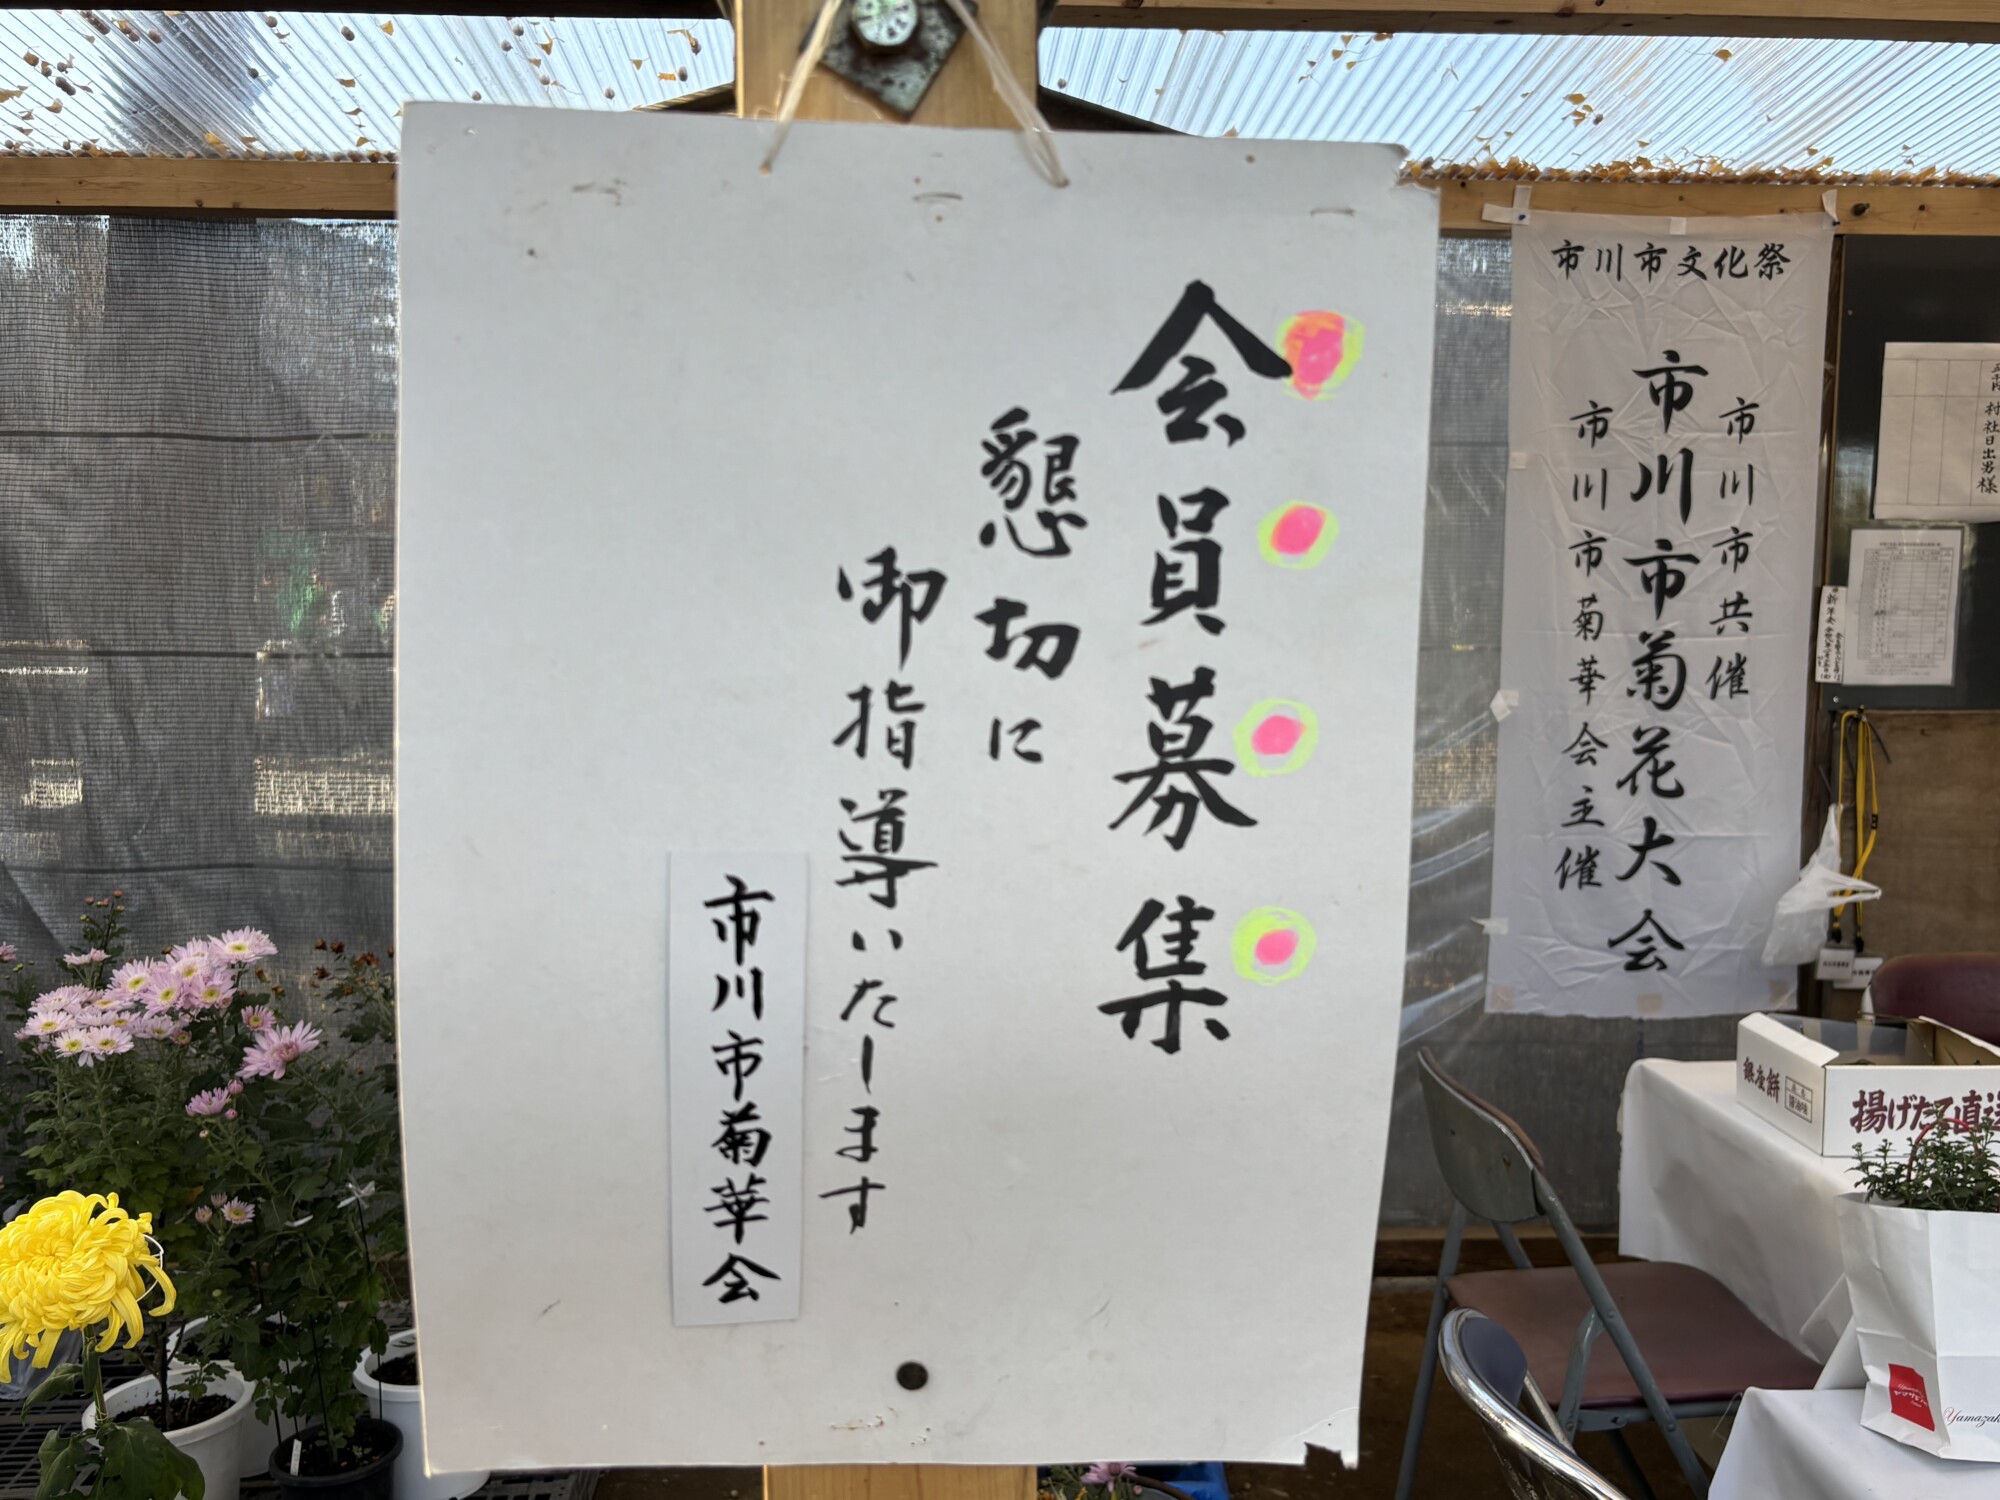 会員募集
懇切に
御指導いたします
市川市菊華会
市川市文化祭
市川市共催
市川市菊花大会
市川市菊華会主催
村社日出男様
銀座餅
醤油味
揚げたて直送